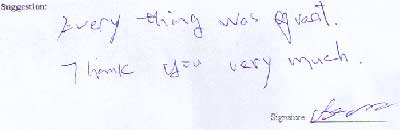 Suggestion:
Every thing was great.
Thank you very much.
Signature